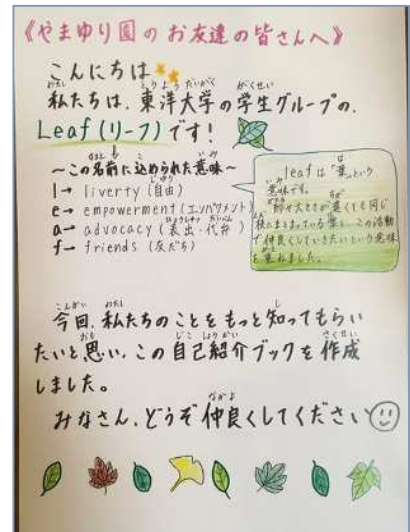 《やまゆり園のお友達の皆さんへ》
こんにちは
私たちは、東洋大学の学生グループの、
Leaf(リーフ)です!
~この名前に込められた意味~
l→ liverty(自由)
e→ empowerment(エンパワメント)
a→ advocacy(表出・代弁)
f→ friends(友だち)
leafは「葉」という
意味です。
大きさが違くても同じ
葉
、この活動
で仲良くしていきたいという意味
を重ねました。
今回、私たちのことをもっと知ってもらい
たいと思い、この自己紹介ブックを作成
しました。
みなさん、どうぞ仲良くしてください